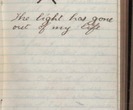 X
The light has gone
out of my life